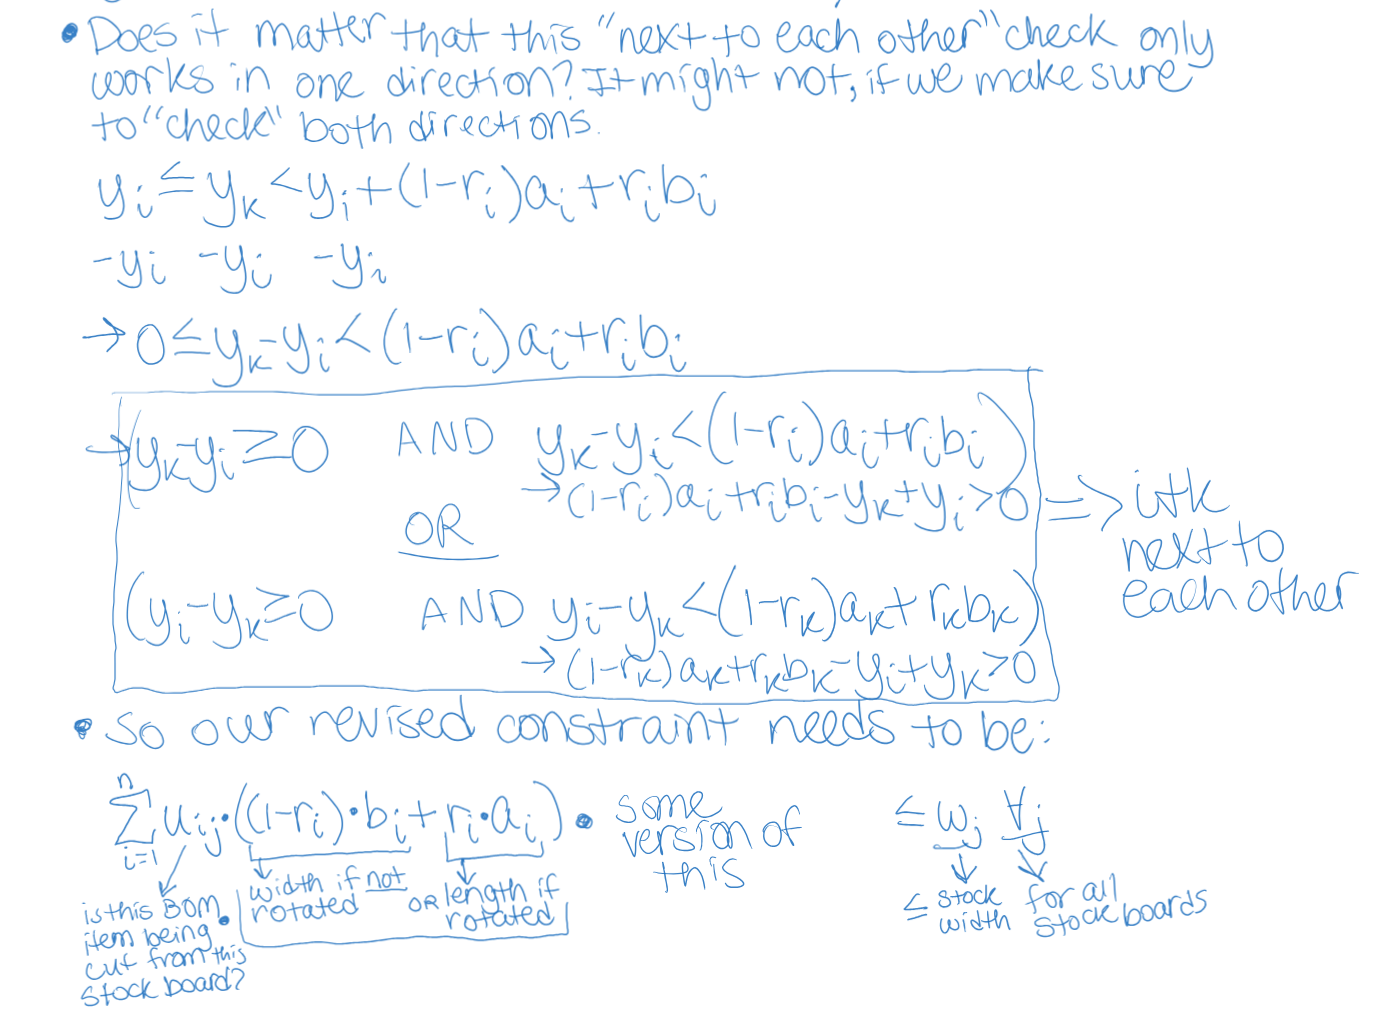 • Does it matter that this "next to each other" check only
works in one direction? It might not, if we make sure
to "check" both directions.
yᵢ ≤ yₖ < yᵢ + (1-rᵢ)aᵢ + rᵢbᵢ
-yᵢ -yᵢ -yᵢ
→ 0 ≤ yₖ - yᵢ < (1-rᵢ)aᵢ + rᵢbᵢ
→ (yₖ - yᵢ ≥ 0 AND yₖ - yᵢ < (1-rᵢ)aᵢ + rᵢbᵢ)
→ (1-rᵢ)aᵢ + rᵢbᵢ - yₖ + yᵢ > 0
OR
(yᵢ - yₖ ≥ 0 AND yᵢ - yₖ < (1-rₖ)aₖ + rₖbₖ)
→ (1-rₖ)aₖ + rₖbₖ - yᵢ + yₖ > 0
=> i + k
next to
each other
• So our revised constraint needs to be:
n
∑ uᵢⱼ • ((1-rᵢ) • bᵢ + rᵢ • aᵢ) • some version of this ≤ wⱼ ∀ⱼ
i=1
is this BOM
item being
cut from this
stock board?
•
width if not
rotated
OR length if
rotated
≤ stock
width
for all
stock boards